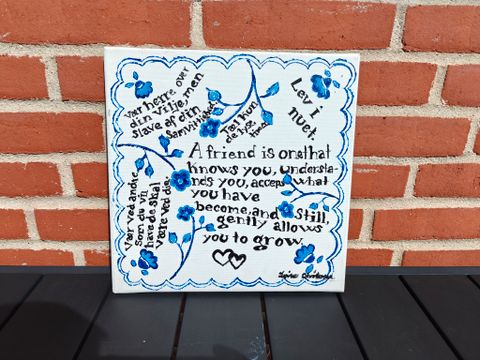 Vær herre over
din Vilje, men
slave af din
Samvittighed
Tæl kun
de lyse
timer
Lev i
nuet.
A friend is one that
knows you, understa-
nds you, accepts what
you have
become, and still,
gently allows
you to grow.
Vær ved andre
Som du vil
have de skal
være ved dig